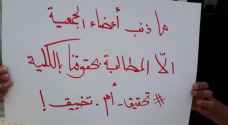 ما ذنب أعضاء الجمعية
الا المطالبة بحقوقنا بالكلية
# تحقيق - أم - تخفيق !